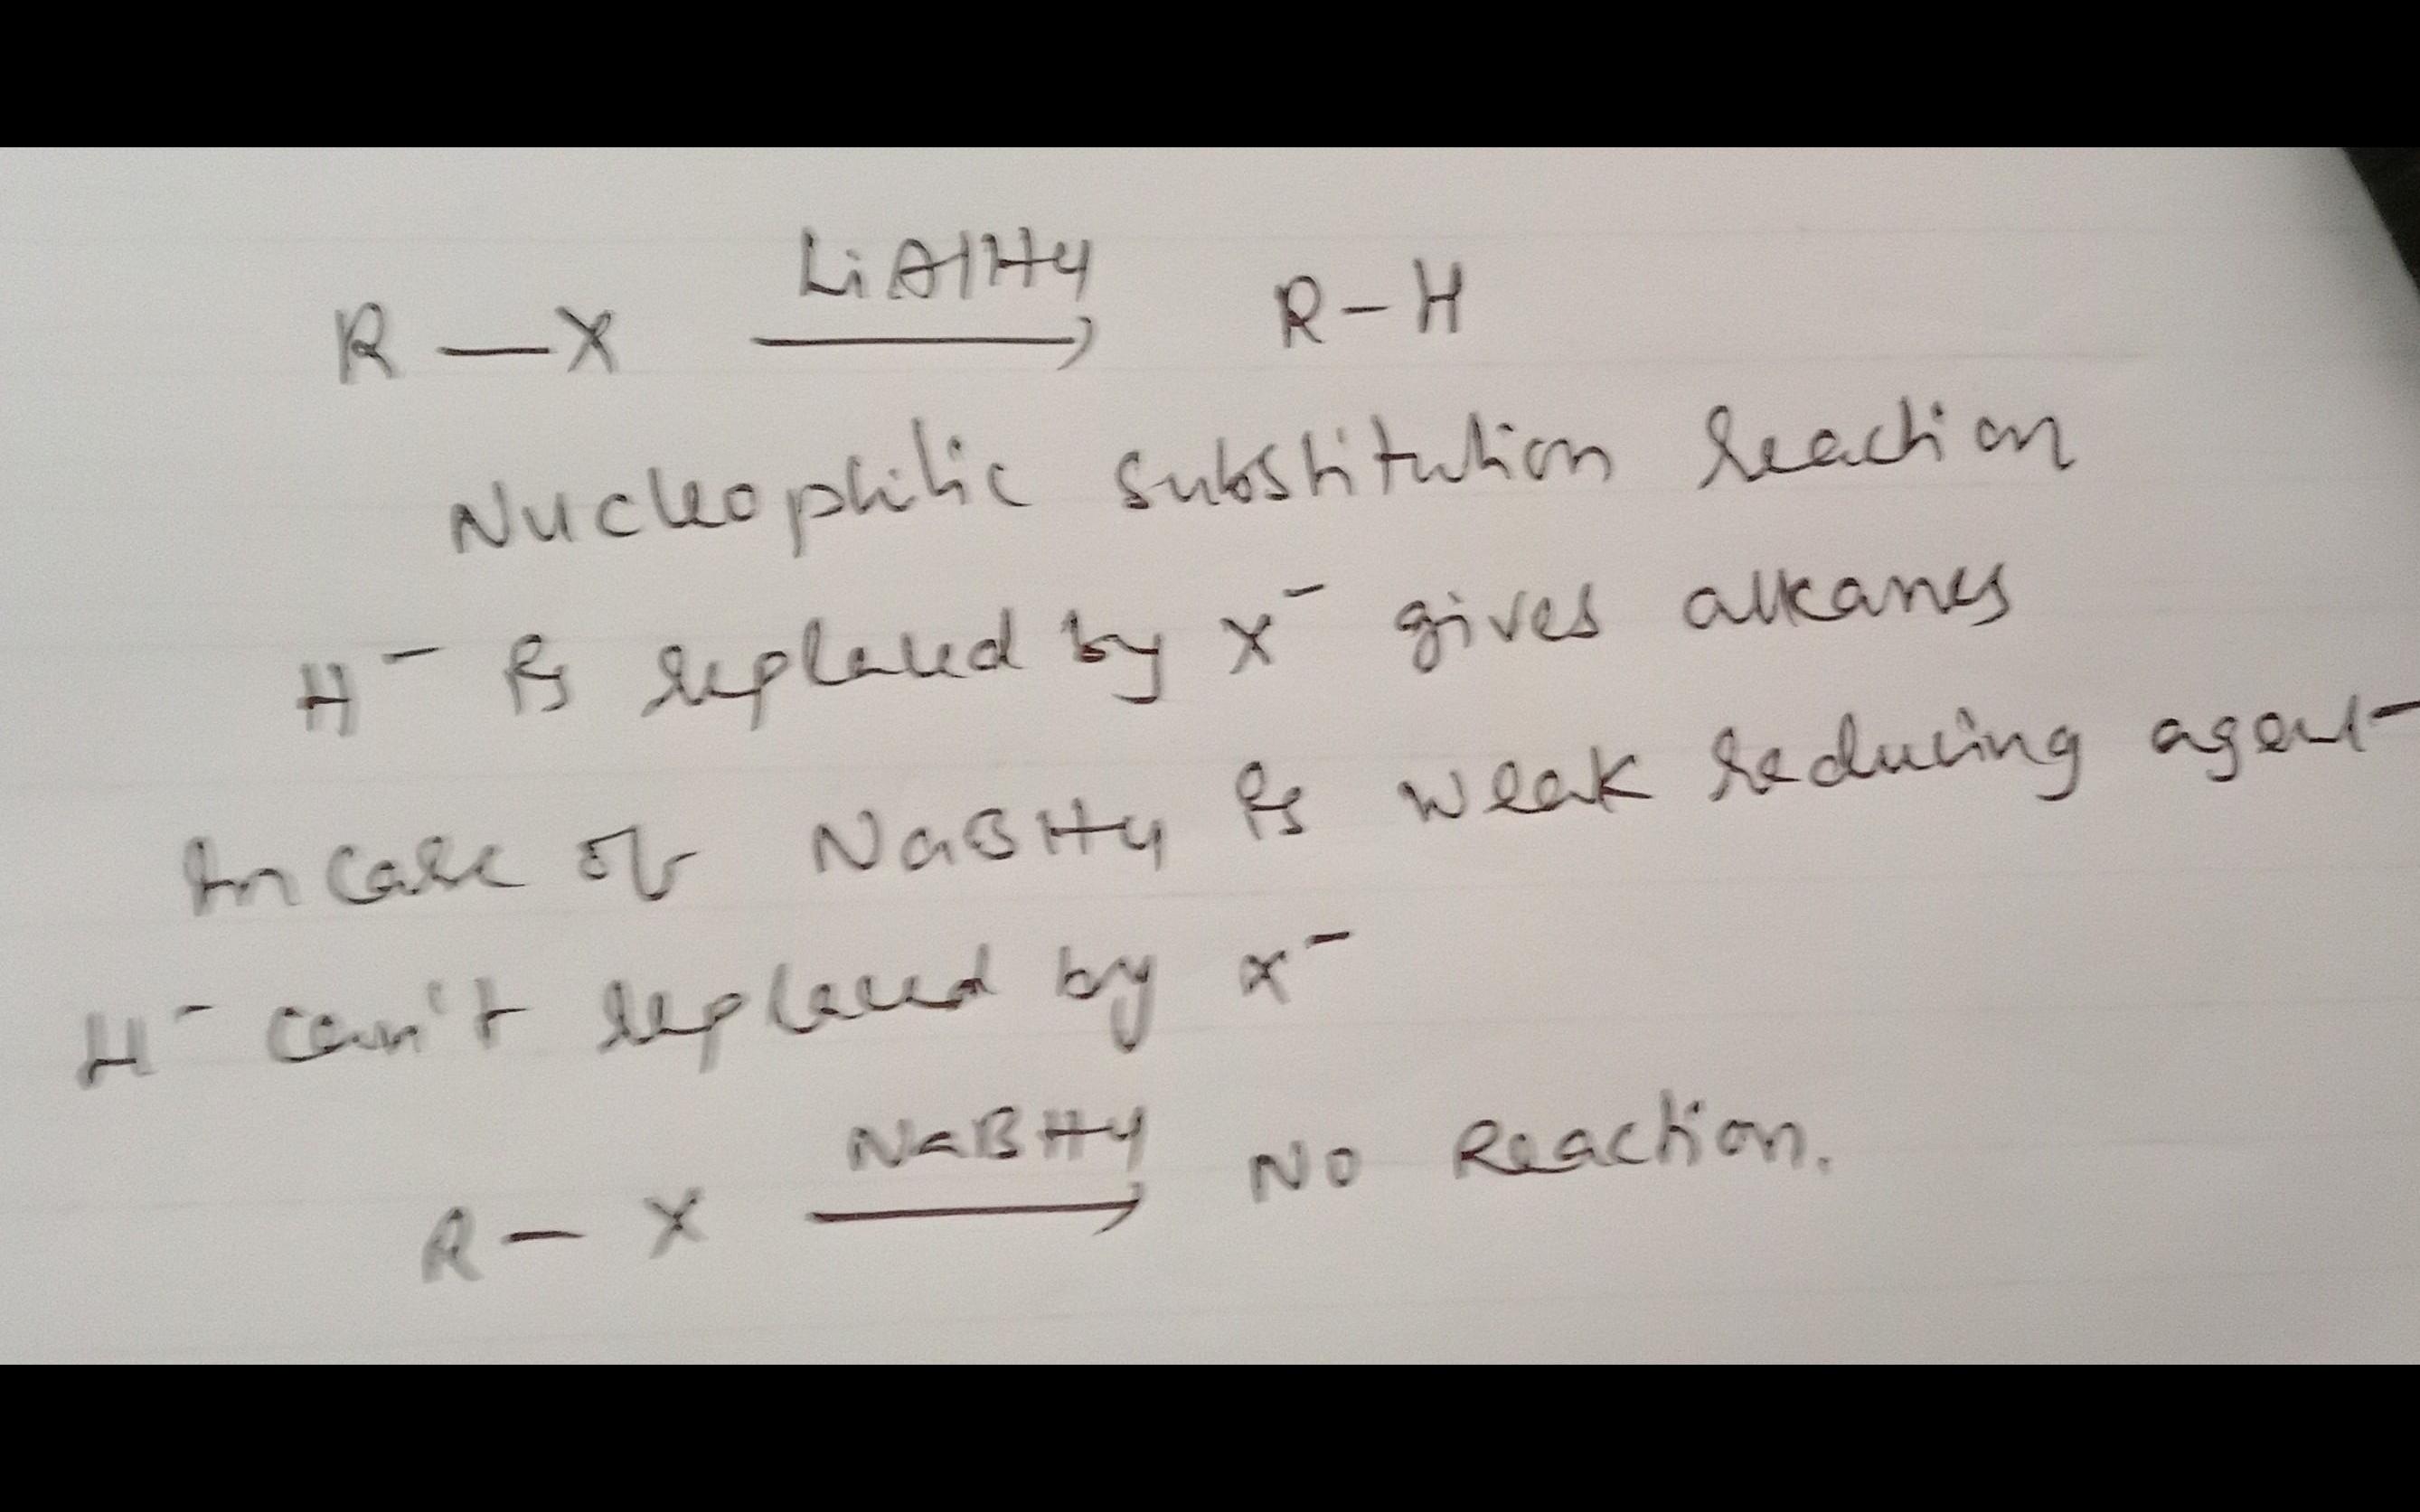 R — X LiAlH4 → R - H
Nucleophilic substitution reaction
H⁻ is replaced by X⁻ gives alkanes
In case of NaBH4 is weak reducing agent
H⁻ can't replaced by x⁻
R — X NaBH4 → No Reaction.